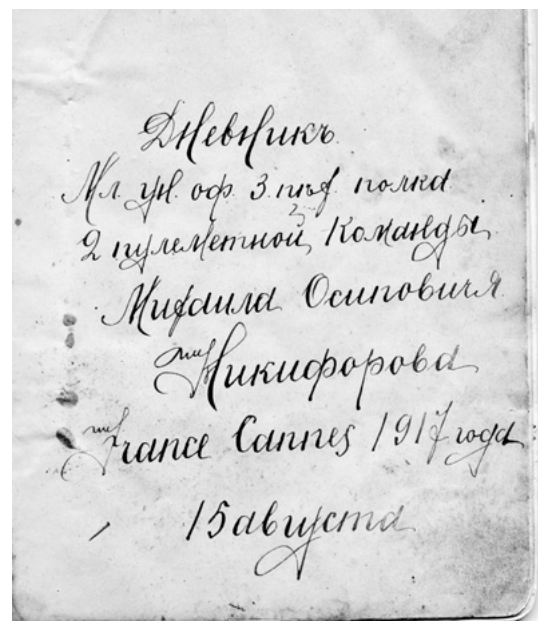 Дневникъ
Мл. ун. оф. 3. пѣх. полка
2 пулеметной Команды
Михаила Осиповича
Никифорова
France Cannes 1917 года
15 августа